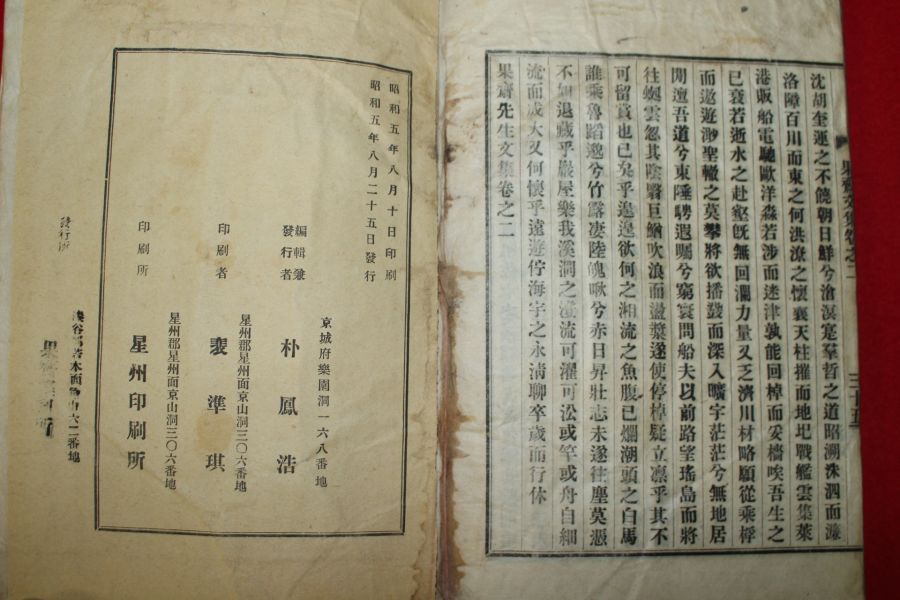 沈胡奎運之不饒朝日鮮兮滄溟寔羣哲之道昭溯洙泗而濂
洛障百川而東之何洪潦之懷襄天柱摧而地圯戰艦雲集萊
港販船電馳歐洋淼若涉而迷津孰能回棹而妥檣唉吾生之
已衰若逝水之赴壑旣無回瀾力量又乏濟川材略願從乘桴
而遨遊渺聖轍之莫攀將欲播鼗而深入曠宇茫茫兮無地居
閒遭吾道兮東陲騁遐矚兮窮寰問船夫以前路望瑤島而將
往蜿雲忽其陰翳巨鰌吹浪而盪槳遂使停棹疑立凛乎其不
可留賞也已矣乎遑遑欲何之湘流之魚腹已爛潮頭之白馬
誰乘魯蹈邈兮竹露凄陸魄啾兮赤日昇壯志未遂往塵莫憑
不如退藏乎巖屋樂我溪澗之澄流可濯可泅或竿或舟自細
流而成大又何懷乎遠遊佇海宇之永淸聊卒歲而行休
果齋先生文集卷之二
果齋文集卷之二
三十五
昭和五年八月十日印刷
昭和五年八月二十五日發行
京城府樂園洞一六八番地
編輯兼
發行者
朴鳳浩
星州郡星州面京山洞三〇六番地
印刷者
裵準琪
星州郡星州面京山洞三〇六番地
印刷所
星州印刷所
發行所